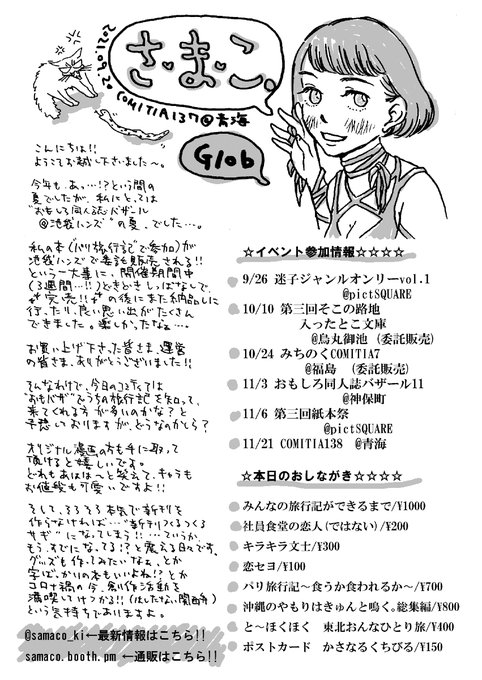 2021.09.20
COMITIA137@青海
さ・ま・こ。
Glob
こんにちは!!
ようこそお越し下さいました〜。
今年も、あっ…!?という間の
夏でしたが、私にとっては
"おもしろ同人誌バザール
@池袋ハンズ"の夏、でした…。
私の本(パリ旅行記で参加)が
池袋ハンズで委託販売される!!
という一大事に、開催期間中
(3週間…!!)どきどきしっぱなしで、
完売!!の後にまた納品しに
行ったり、良い思い出がたくさん
できました。楽しかったなぁ…。
お買い上げ下さった皆さま、運営
の皆さま、ありがとうございました!!
そんなわけで、今日のコミティアでは
"おもバザ"どうちの旅行記を知って、
来てくれる方が多いのかな?と
予想しておりますが、どうなのかしら?
オリジナル漫画の方も手に取って
頂けると嬉しいです。
どれもあははーっと笑えて、キャラも
お値段も可愛いですよ!!
そして、そろそろ本気で新刊を
作らなければ…"新刊つくるつくる
サギ"になってしまう!!…という、か
もう、すでになってる!?と震える日々です。
グッズも作ってみたいなぁ、とか
字ばっかりの本もいいよね!?とか
コロナ禍の今、創作活動を
満喫していけつかる!!(はしたない関西弁)
という気持ちでありますよ。
@samaco_ki←最新情報はこちら!!
samaco.booth.pm ←通販はこちら!!
☆イベント参加情報☆☆☆☆
9/26 迷子ジャンルオンリーvol.1
@pictSQUARE
10/10 第三回そこの路地
入ったとこ文庫
@烏丸御池 (委託販売)
10/24 みちのくCOMITIA7
@福島 (委託販売)
11/3 おもしろ同人誌バザール11
@神保町
11/6 第三回紙本祭
@pictSQUARE
11/21 COMITIA138 @青海
☆本日のおしながき☆☆☆☆
みんなの旅行記ができるまで/¥1000
社員食堂の恋人(ではない)/¥200
キラキラ文士/¥300
恋セヨ/¥100
パリ旅行記〜食うか食われるか〜/¥700
沖縄のやもりはきゅんと鳴く。総集編/¥800
と〜ほくほく 東北おんなひとり旅/¥400
ポストカード かさなるくちびる/¥150